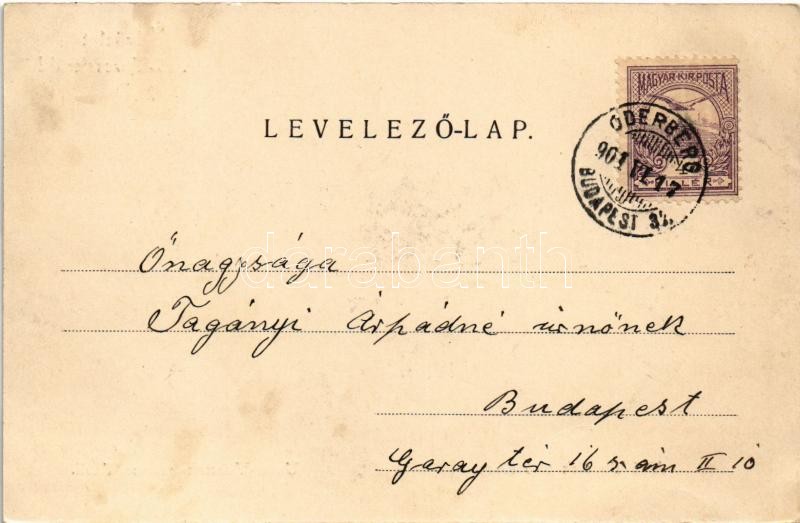 MAGYAR·KIR·POSTA
LEVELEZŐ-LAP.
ODERBERG
901 VI 17
BUDAPEST
darabanth
Őnagysága
Tagányi Árpádné úrnőnek
Budapest
Garay tér 16 szám II 10